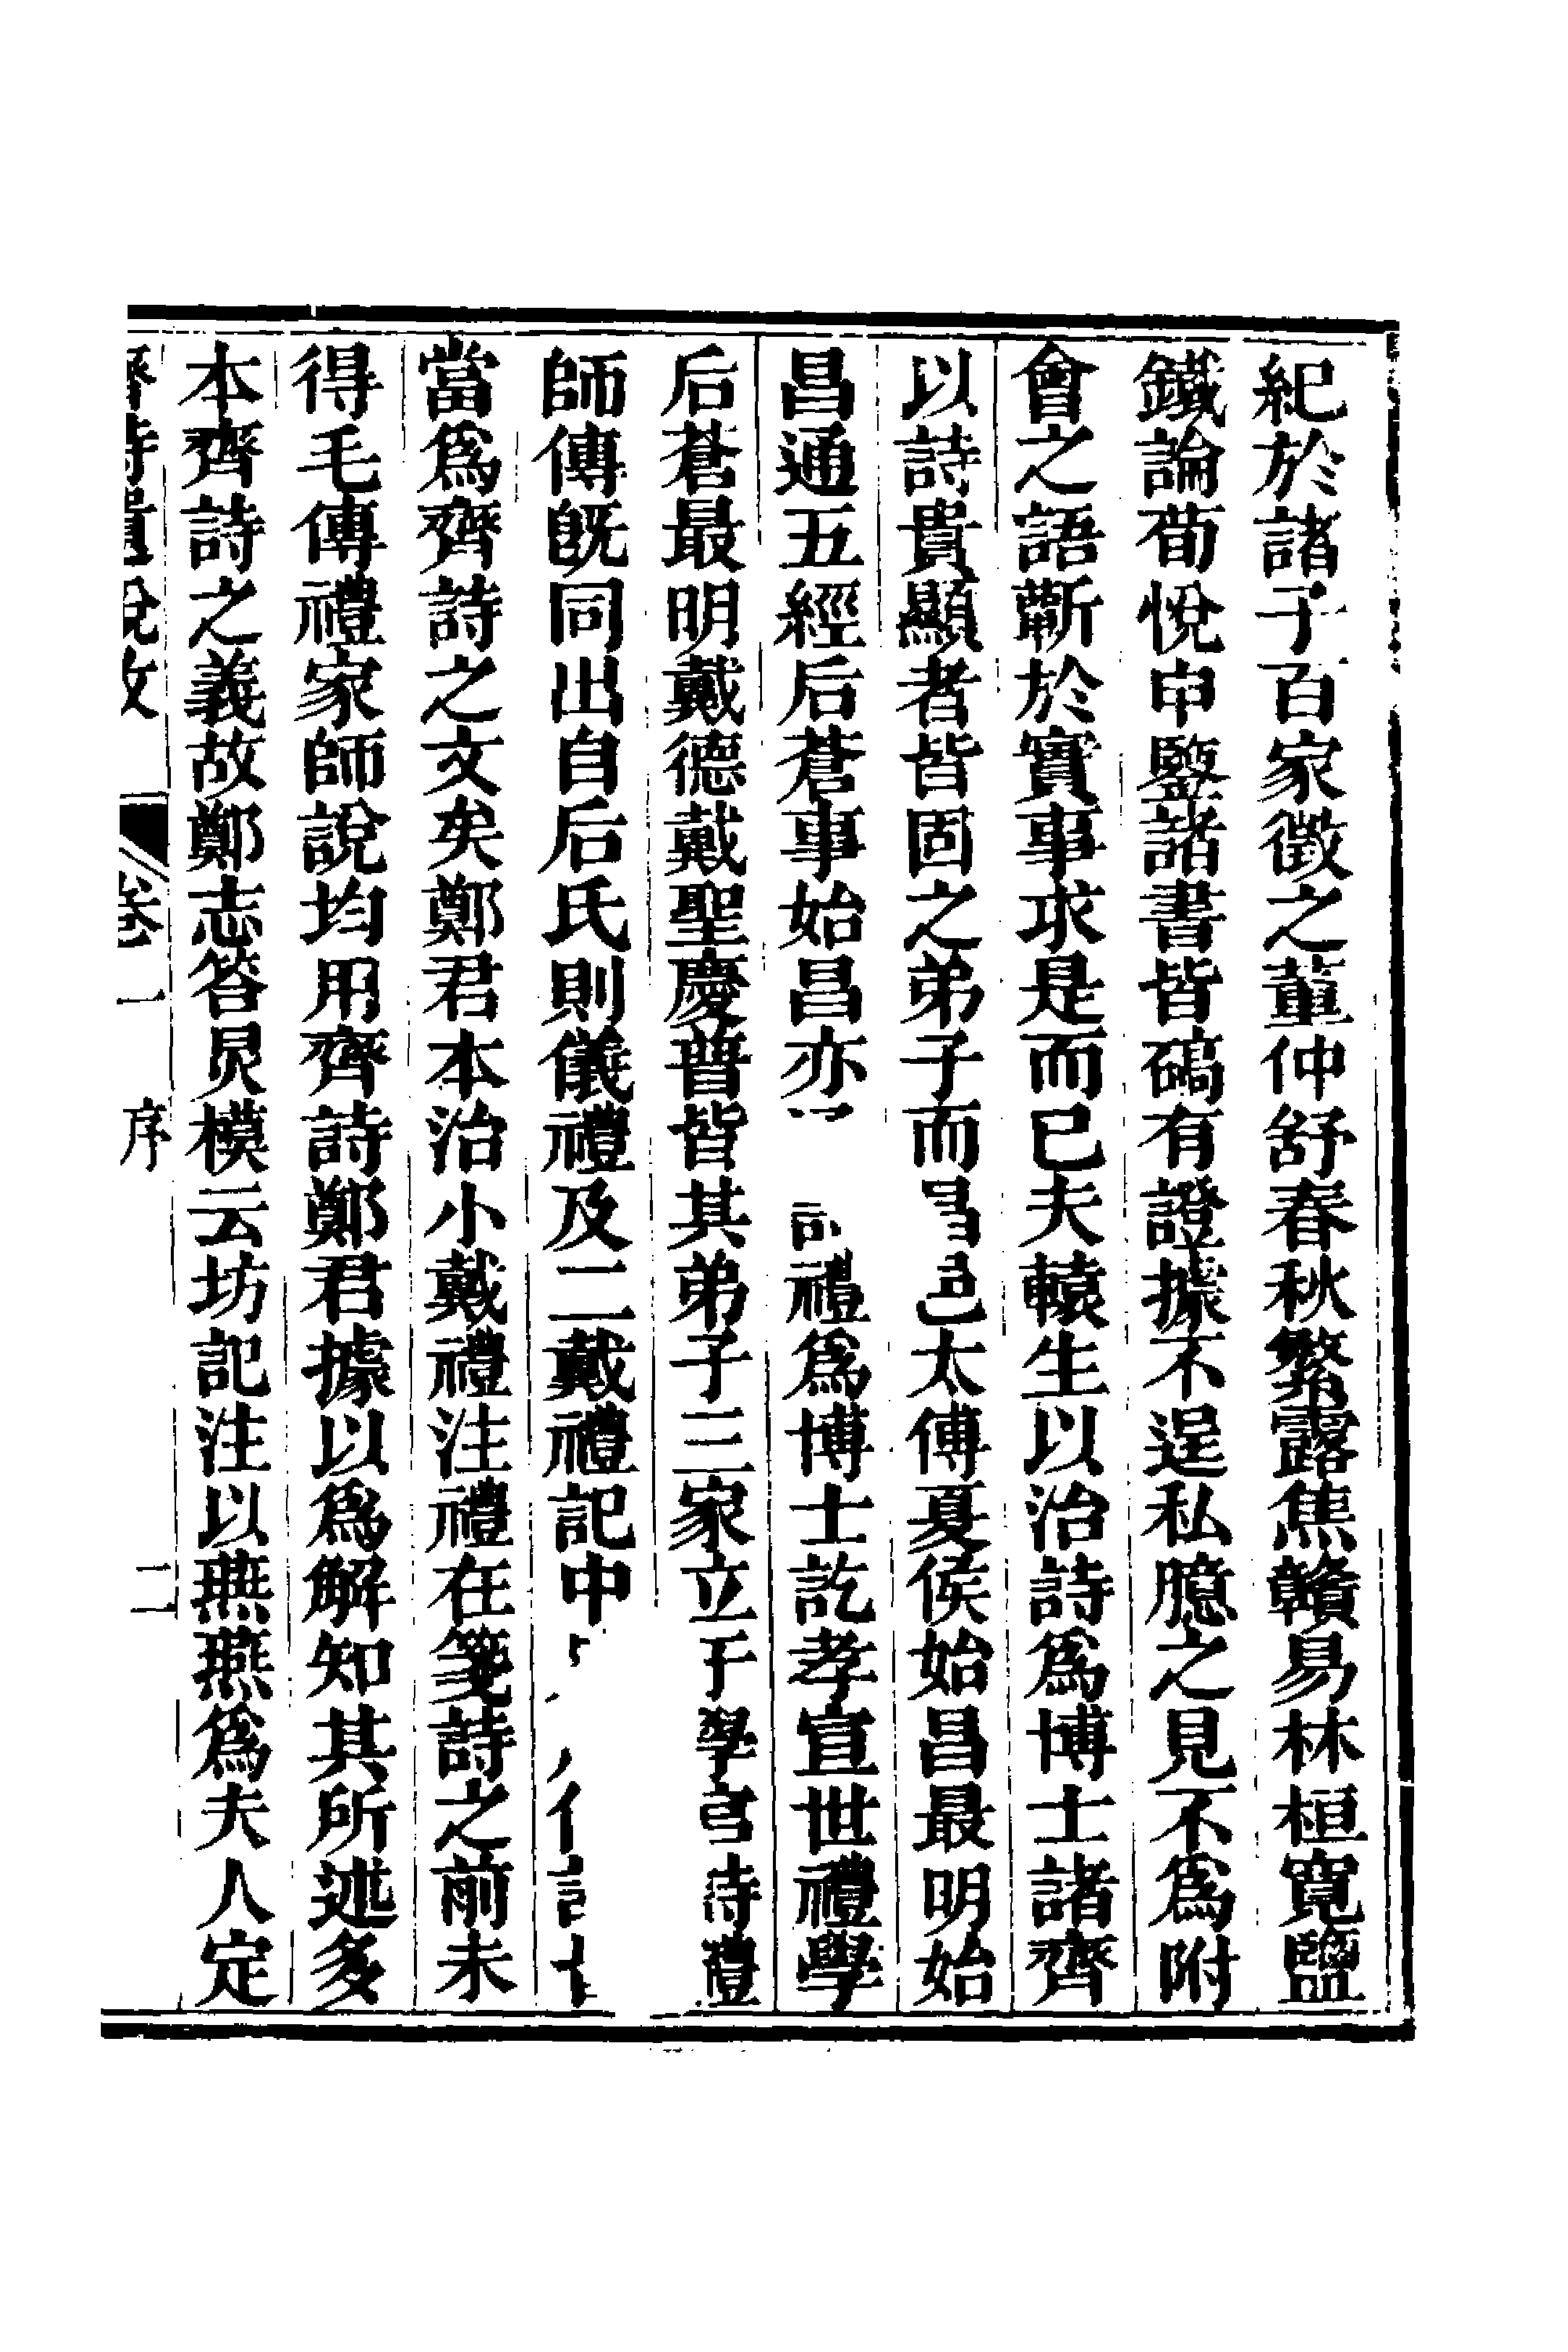 紀於諸子百家徵之董仲舒春秋繁露焦贛易林桓寬鹽
鐵論荀悅申鑒諸書皆碻有證據不逞私臆之見不爲附
會之語蘄於實事求是而已夫轅生以治詩爲博士諸齊
以詩貴顯者皆固之弟子而昌邑太傅夏侯始昌最明始
昌通五經后蒼事始昌亦禮爲博士訖孝宣世禮學
后蒼最明戴德戴聖慶普皆其弟子三家立于學官詩禮
師傳旣同出自后氏則儀禮及二戴禮記中
當爲齊詩之文矣鄭君本治小戴禮注禮在箋詩之前未
得毛傳禮家師說均用齊詩鄭君據以爲解知其所述多
本齊詩之義故鄭志答炅模云坊記注以燕燕爲夫人定
齊詩遺說攷 卷一 序 二